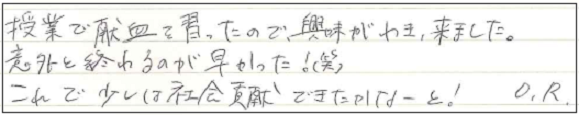 授業で献血を習ったので、興味がわき、来ました。
意外と終わるのが早かった!(笑)
これで少しは社会貢献できたかなーと! O.R.